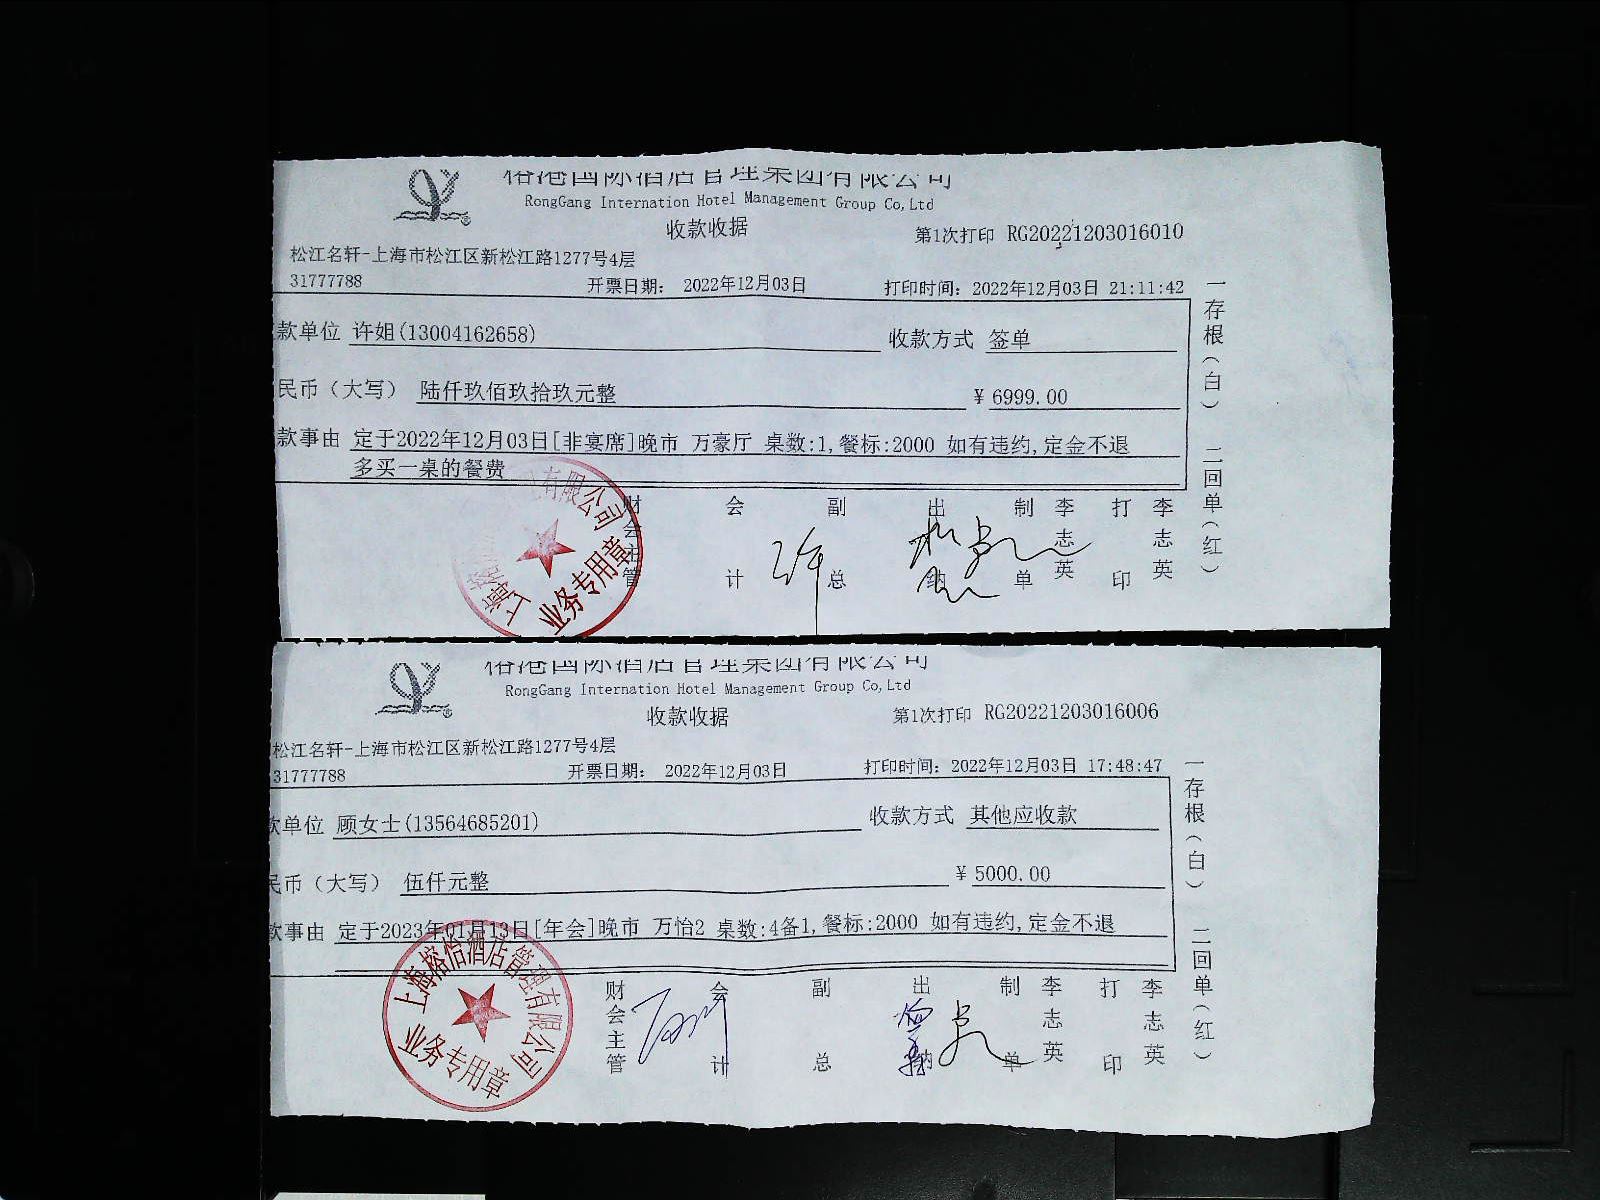 榕港国际酒店管理集团有限公司
RongGang Internation Hotel Management Group Co,Ltd
收款收据
第1次打印 RG20221203016010
松江名轩-上海市松江区新松江路1277号4层
31777788 开票日期: 2022年12月03日 打印时间: 2022年12月03日 21:11:42
款单位 许姐(13004162658) 收款方式 签单
民币（大写） 陆仟玖佰玖拾玖元整 ¥ 6999.00
款事由 定于2022年12月03日[非宴席]晚市 万豪厅 桌数:1,餐标:2000 如有违约,定金不退
多买一桌的餐费
财会主管 会计 副总 出纳 制单 李志英 打印 李志英
一存根(白) 二回单(红)
业务专用章
榕港国际酒店管理集团有限公司
RongGang Internation Hotel Management Group Co,Ltd
收款收据
第1次打印 RG20221203016006
松江名轩-上海市松江区新松江路1277号4层
31777788 开票日期: 2022年12月03日 打印时间: 2022年12月03日 17:48:47
款单位 顾女士(13564685201) 收款方式 其他应收款
民币（大写） 伍仟元整 ¥ 5000.00
款事由 定于2023年01月13日[年会]晚市 万怡2 桌数:4备1,餐标:2000 如有违约,定金不退
财会主管 会计 副总 出纳 制单 李志英 打印 李志英
一存根(白) 二回单(红)
上海榕怡酒店管理有限公司
业务专用章